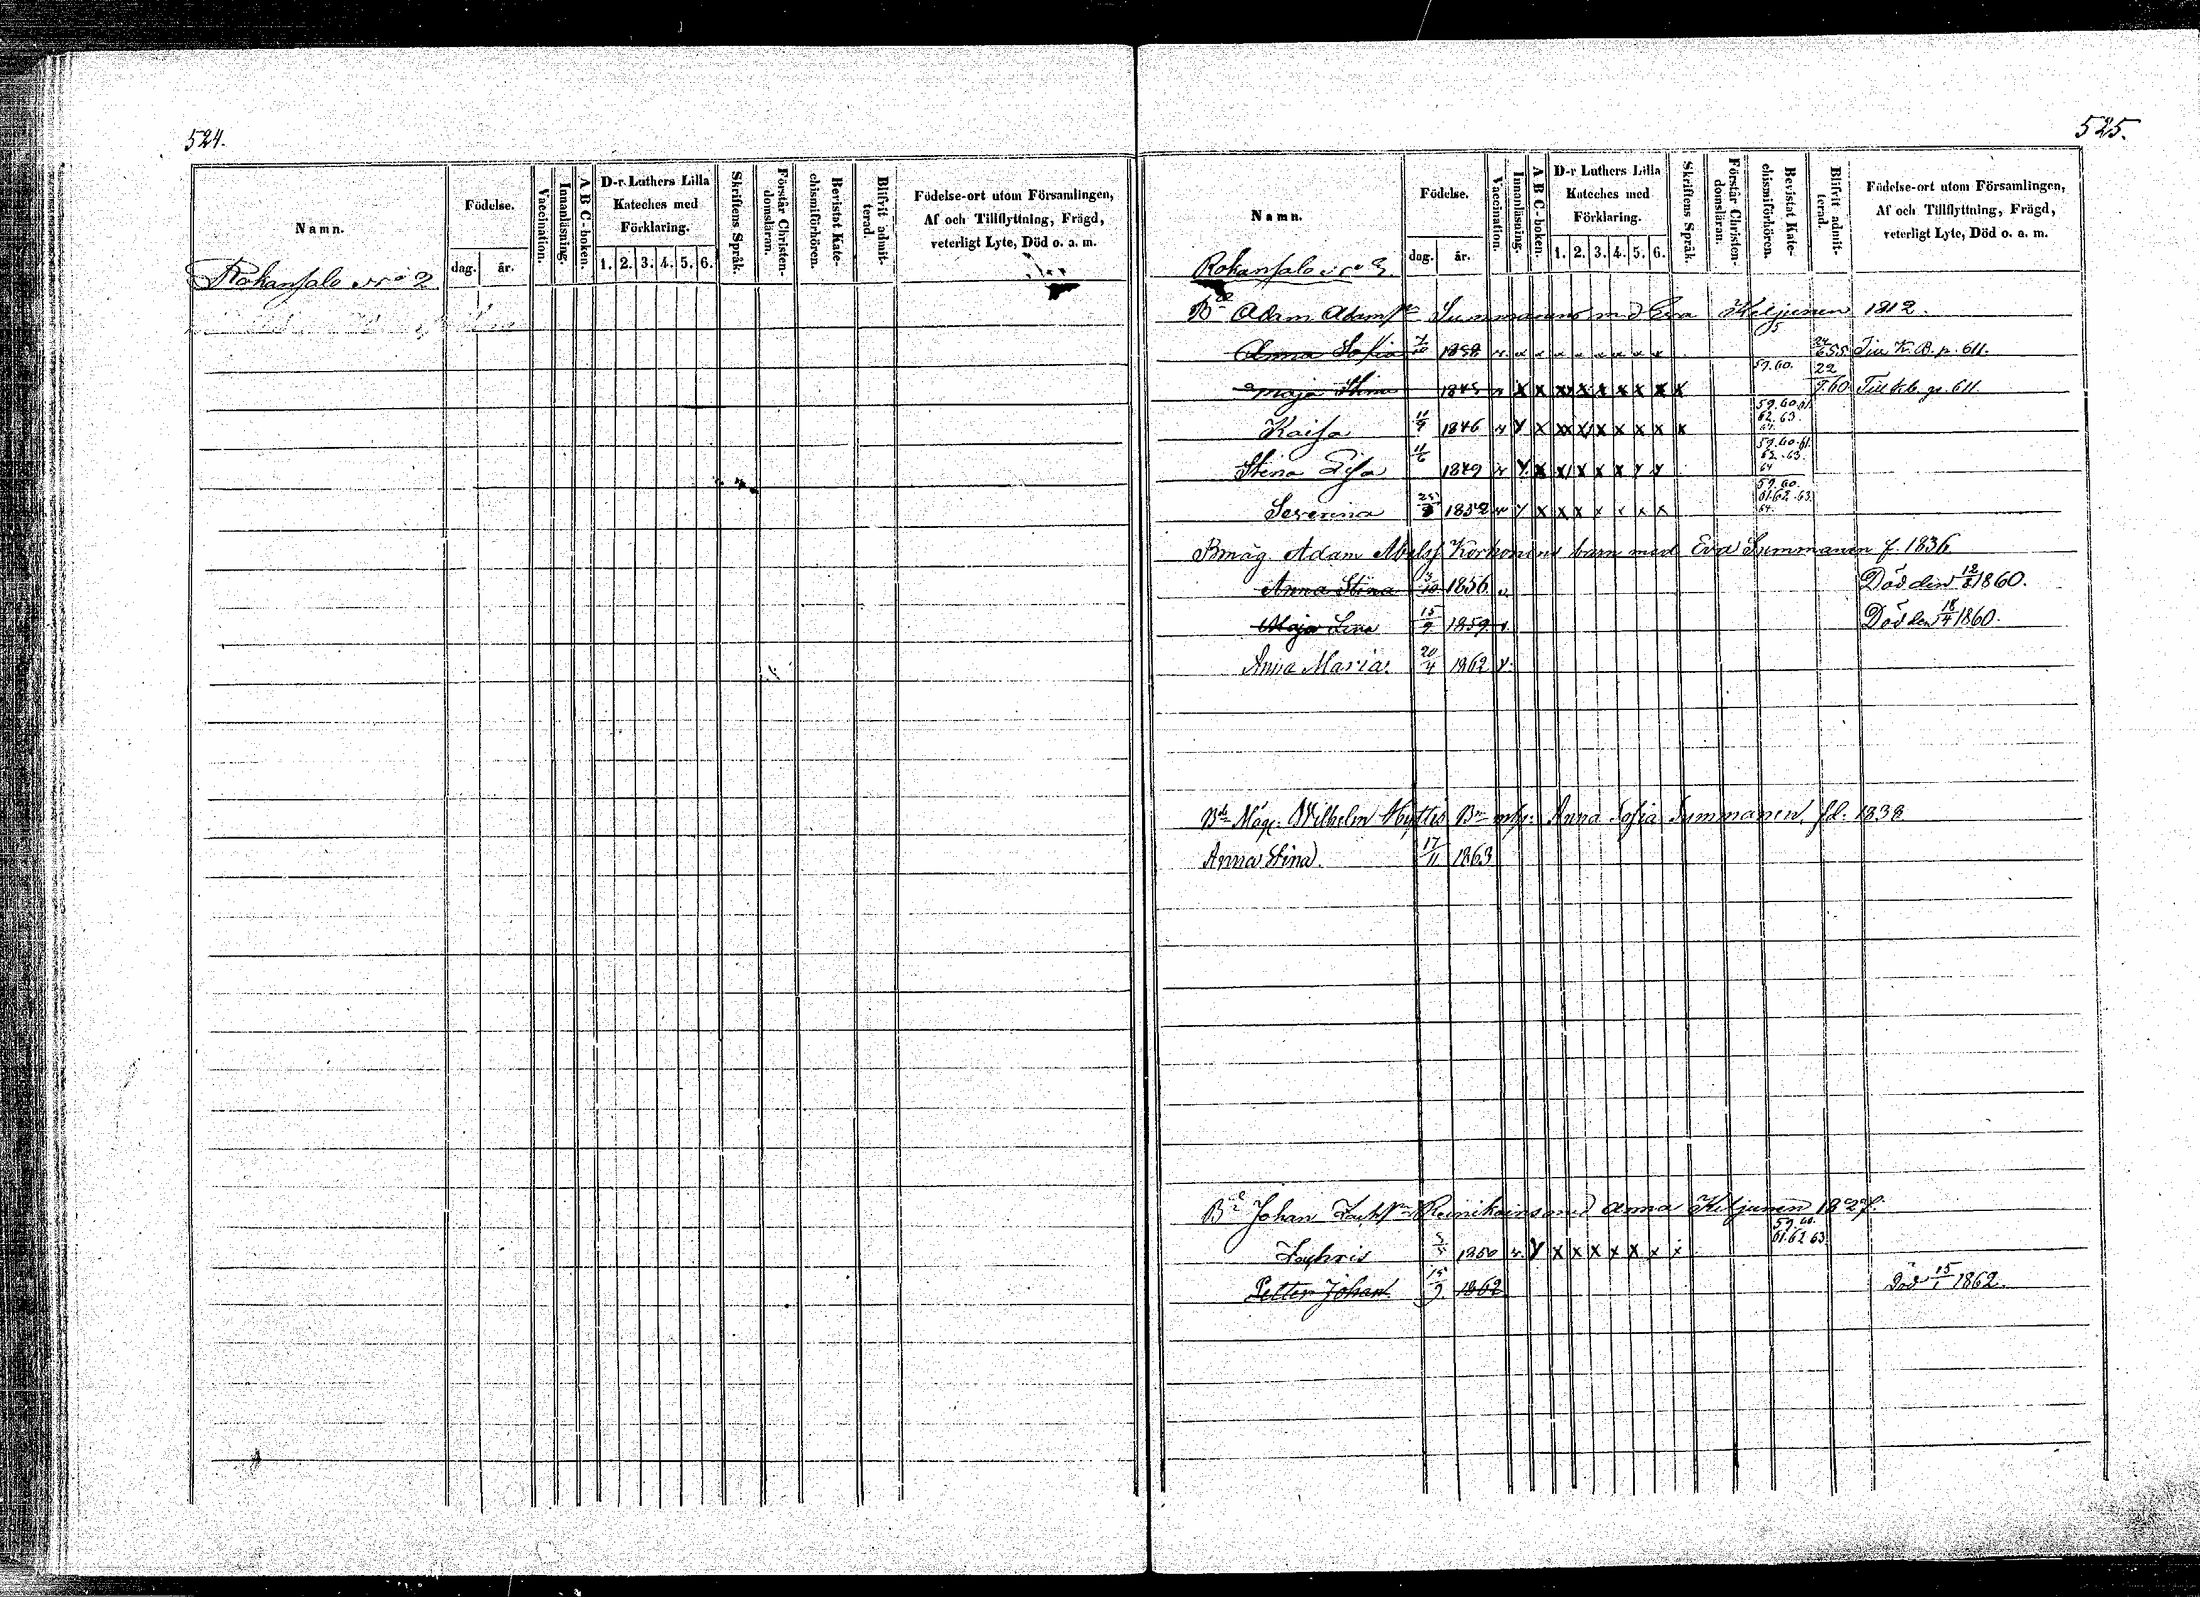 524.
Namn. Födelse. Vaccination. Innanläsning. A B C-boken. D-r Luthers Lilla Kateches med Förklaring. Skriftens Språk. Förstår Christendomsläran. Bevistat Katechismiförhören. Blifvit admitterad. Födelse-ort utom Församlingen, Af och Tillflyttning, Frägd, veterligt Lyte, Död o. a. m.
dag. år. 1. 2. 3. 4. 5. 6.
Rokansalo No 2
525.
Namn. Födelse. Vaccination. Innanläsning. A B C-boken. D-r Luthers Lilla Kateches med Förklaring. Skriftens Språk. Förstår Christendomsläran. Bevistat Katechismiförhören. Blifvit admitterad. Födelse-ort utom Församlingen, Af och Tillflyttning, Frägd, veterligt Lyte, Död o. a. m.
dag. år. 1. 2. 3. 4. 5. 6.
Rokansalo No 2
Bde Adam Adamss:n Summanens m d Eva Kiljunen 1812.
Anna Sofia 1838 v. x x x x x x x x 55 Till K. B. p. 611.
Maja Stina 1845 v x x xx x x x x x x 59. 60. 22/7. 60 Till k.b. p. 611.
Kaisa 11/9 1846 v Y x xx x x x x x x 59. 60. 61. 62. 63. 64.
Stina Lisa 11/6 1849 v Y. x x x x x Y Y 59. 60. 61. 62. 63. 64
Severina 1852 v Y x x x x x x x 59. 60. 61. 62. 63. 64.
Bmåg Adam Abelsss Korhonens barn med Eva Summanen f. 1836
Anna Stina 1856 v Död den 12/8 1860.
Maja Lina 15/9 1859 v. Död den 18/4 1860.
Anna Maria. 20/4 1862 v.
Bde Måge: Wilhelm Hyttis Bn mh: Anna Sofia Summanen, fd. 1838
Anna Stina. 17/11 1863
Bde Johan Zachss:n Reinikains med Anna Kiljunen 1827.
Zachris 1850 v. Y x x x x x x x 59. 60. 61. 62 63
Petter Johan. 15/9. 1862 Död 15/1 1862.